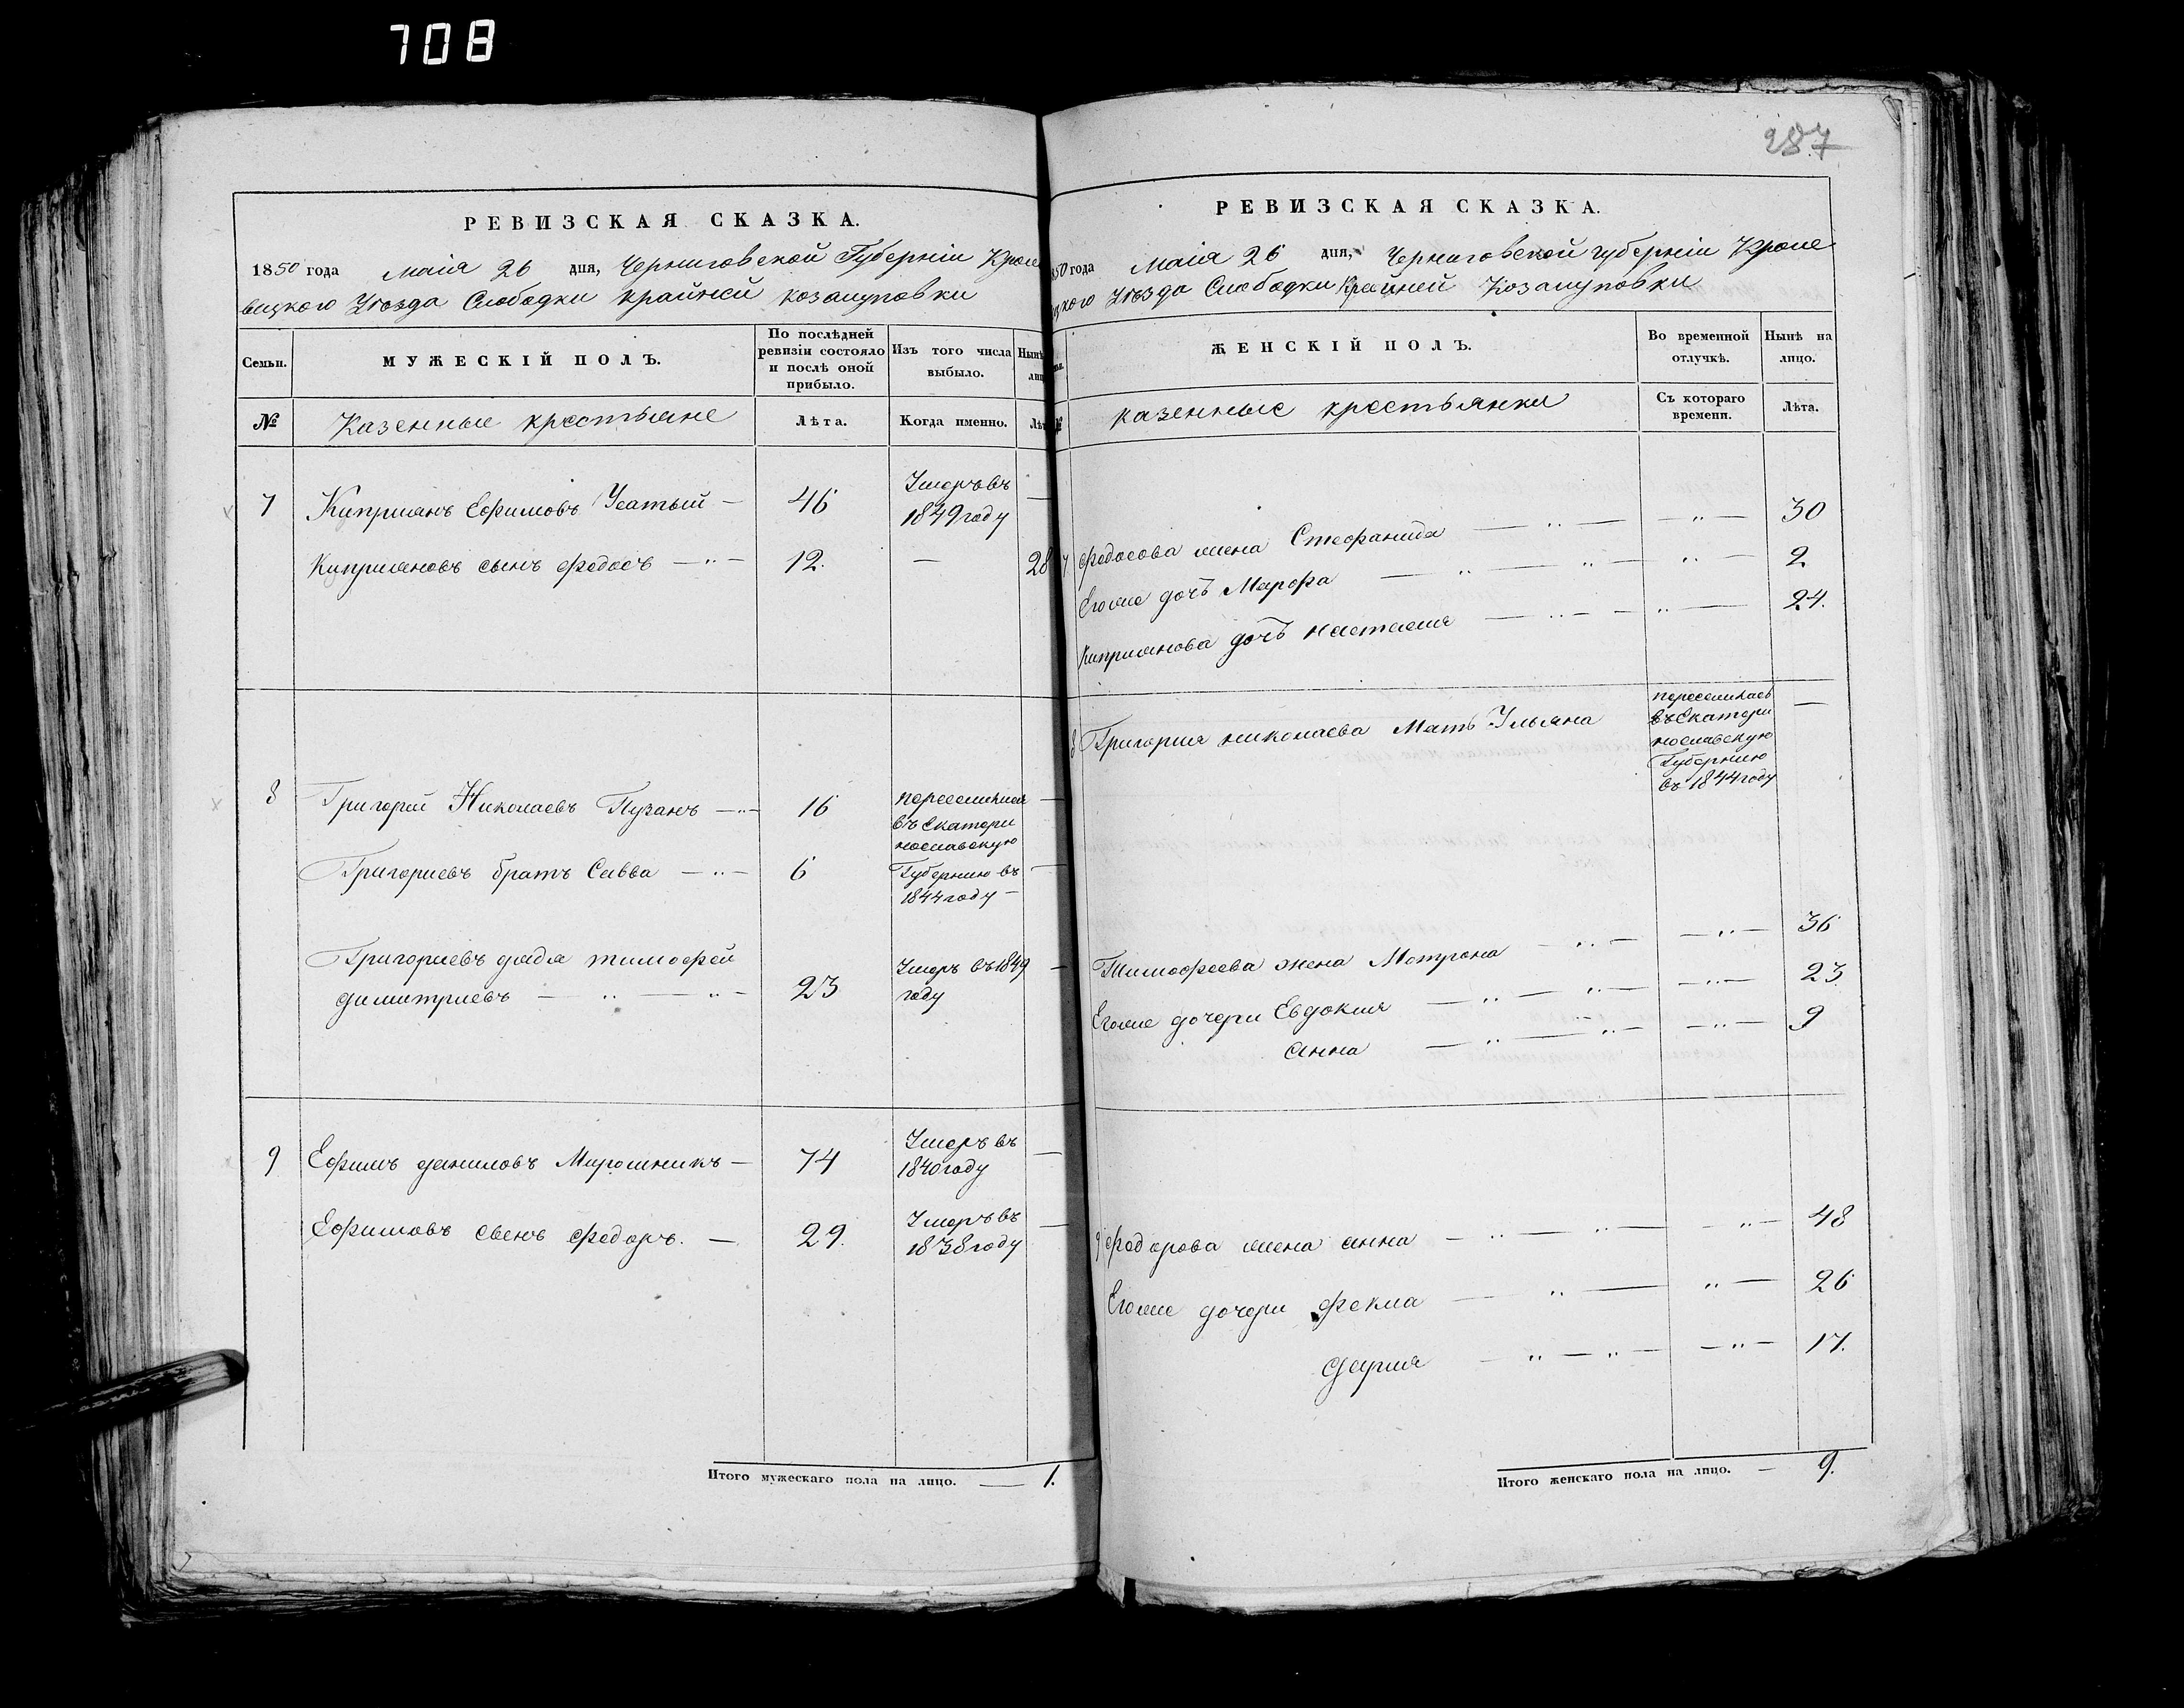 708
РЕВИЗСКАЯ СКАЗКА.
1850 года Маія 26 дня, Черниговской Губерніи Кроле
вецкого Уѣзда Слободки крайней козацуповки
Семьи. МУЖЕСКІЙ ПОЛЪ. По послѣдней ревизіи состояло и послѣ оной прибыло. Изъ того числа выбыло. Нынѣ
№ Казенные крестьяне Лѣта. Когда именно.
7 Киприанъ Ефимовъ Усатый — 46 Умеръ въ —
1849 году
Киприановъ сынъ Федосъ — 12. — 28
8 Григорий Николаевъ Пузанъ — 16 переселился —
въ Екатери
нославскую
Григориевъ братъ Савва — 6 Губернию въ —
1844 году —
Григориевъ дядя тимофей
димитриевъ — 23 Умеръ въ 1849 —
году
9 Ефимъ даниловъ Мирошникъ — 74 Умеръ въ —
1840 году
Ефимовъ сынъ Федоръ. — 29. Умеръ въ —
1838 году
Итого мужескаго пола на лицо. — 1.
287
РЕВИЗСКАЯ СКАЗКА.
850 года Маія 26 дня, Черниговской губерніи Кроле
цкого Уѣзда Слободки Крайней Козацуповки
ЖЕНСКІЙ ПОЛЪ. Во временной отлучкѣ. Нынѣ на лицо.
№ казенные крестьянки Съ котораго времени. Лѣта.
7 Федосова жена Стефанида — „ — 30
Егоже дочь Марфа — „ — 2
Киприанова дочь настасия — „ — 24.
8 Григория николаева Мать Ульяна переселилась —
въ Екатери
нославскую
Губернию
въ 1844 году
Тимофеева жена Мотрона — „ — 36
Егоже дочери Евдокия — „ — 23
анна — „ — 9
9 Федорова жена анна — „ — 48
Егоже дочери Фекла — „ — 26
дария — „ — 17.
Итого женскаго пола на лицо. — 9.